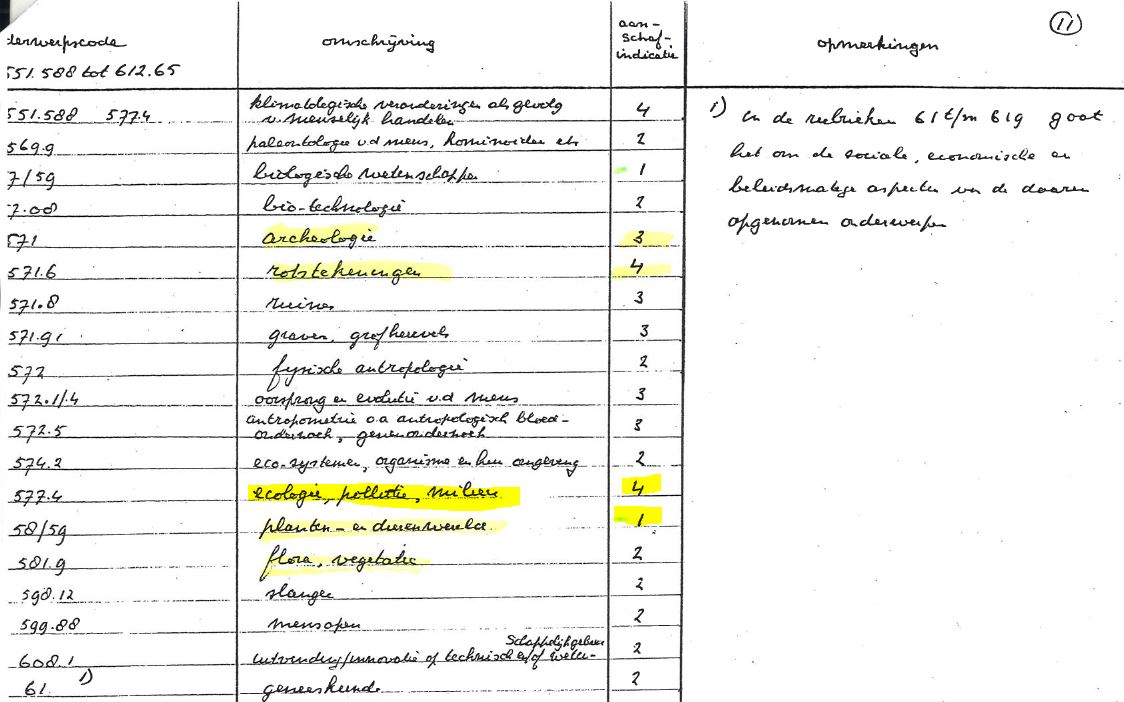 derwerpscode omschrijving aan- schaf- indicatie opmerkingen 11
551.588 tot 612.65
551.588 577.4 klimatologische veranderingen als gevolg v. menselijk handelen 4
569.9 paleontologie v.d mens, hominoiden etc 2
7/59 biologische wetenschappen 1
7.08 bio-technologie 2
571 archeologie 3
571.6 rotstekeningen 4
571.8 ruines 3
571.91 graven, grafheuvels 3
572 fysische antropologie 2
572.1/.4 oorsprong en evolutie v.d mens 3
572.5 antropometrie o.a antropologisch bloed- onderzoek, genenonderzoek 3
574.2 eco-systemen, organisme en hun omgeving 2
577.4 ecologie, pollutie, milieu 4
58/59 planten- en dierenwereld 1
581.9 flora, vegetatie 2
598.12 slangen 2
599.88 mensapen 2
608.1 uitvinding/innovatie of technisch en/of weten- schappelijk gebied 2
61. 1) geneeskunde 2
1) in de rubrieken 61 t/m 619 gaat
het om de sociale, economische en
beleidsmatige aspecten van de daarin
opgenomen onderwerpen